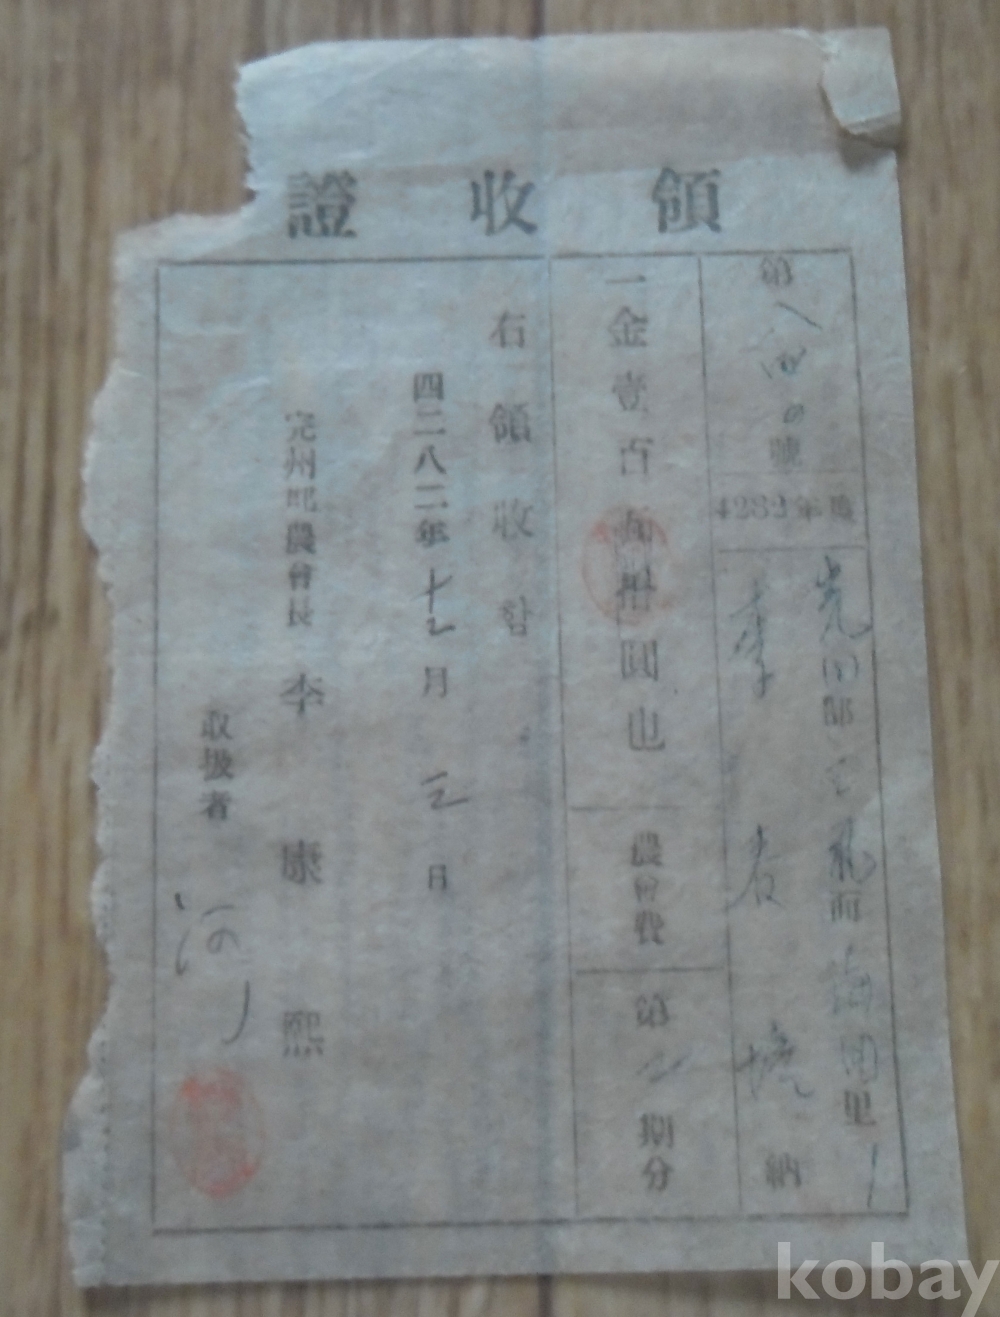 領收證
第八四〇號
4282年度
郡 面 田里
李 春 納
一金壹百五拾圓也
農會費
第二期分
右領收함
四二八二年十二月三日
完州郡農會長 李康熙
取扱者
kobay